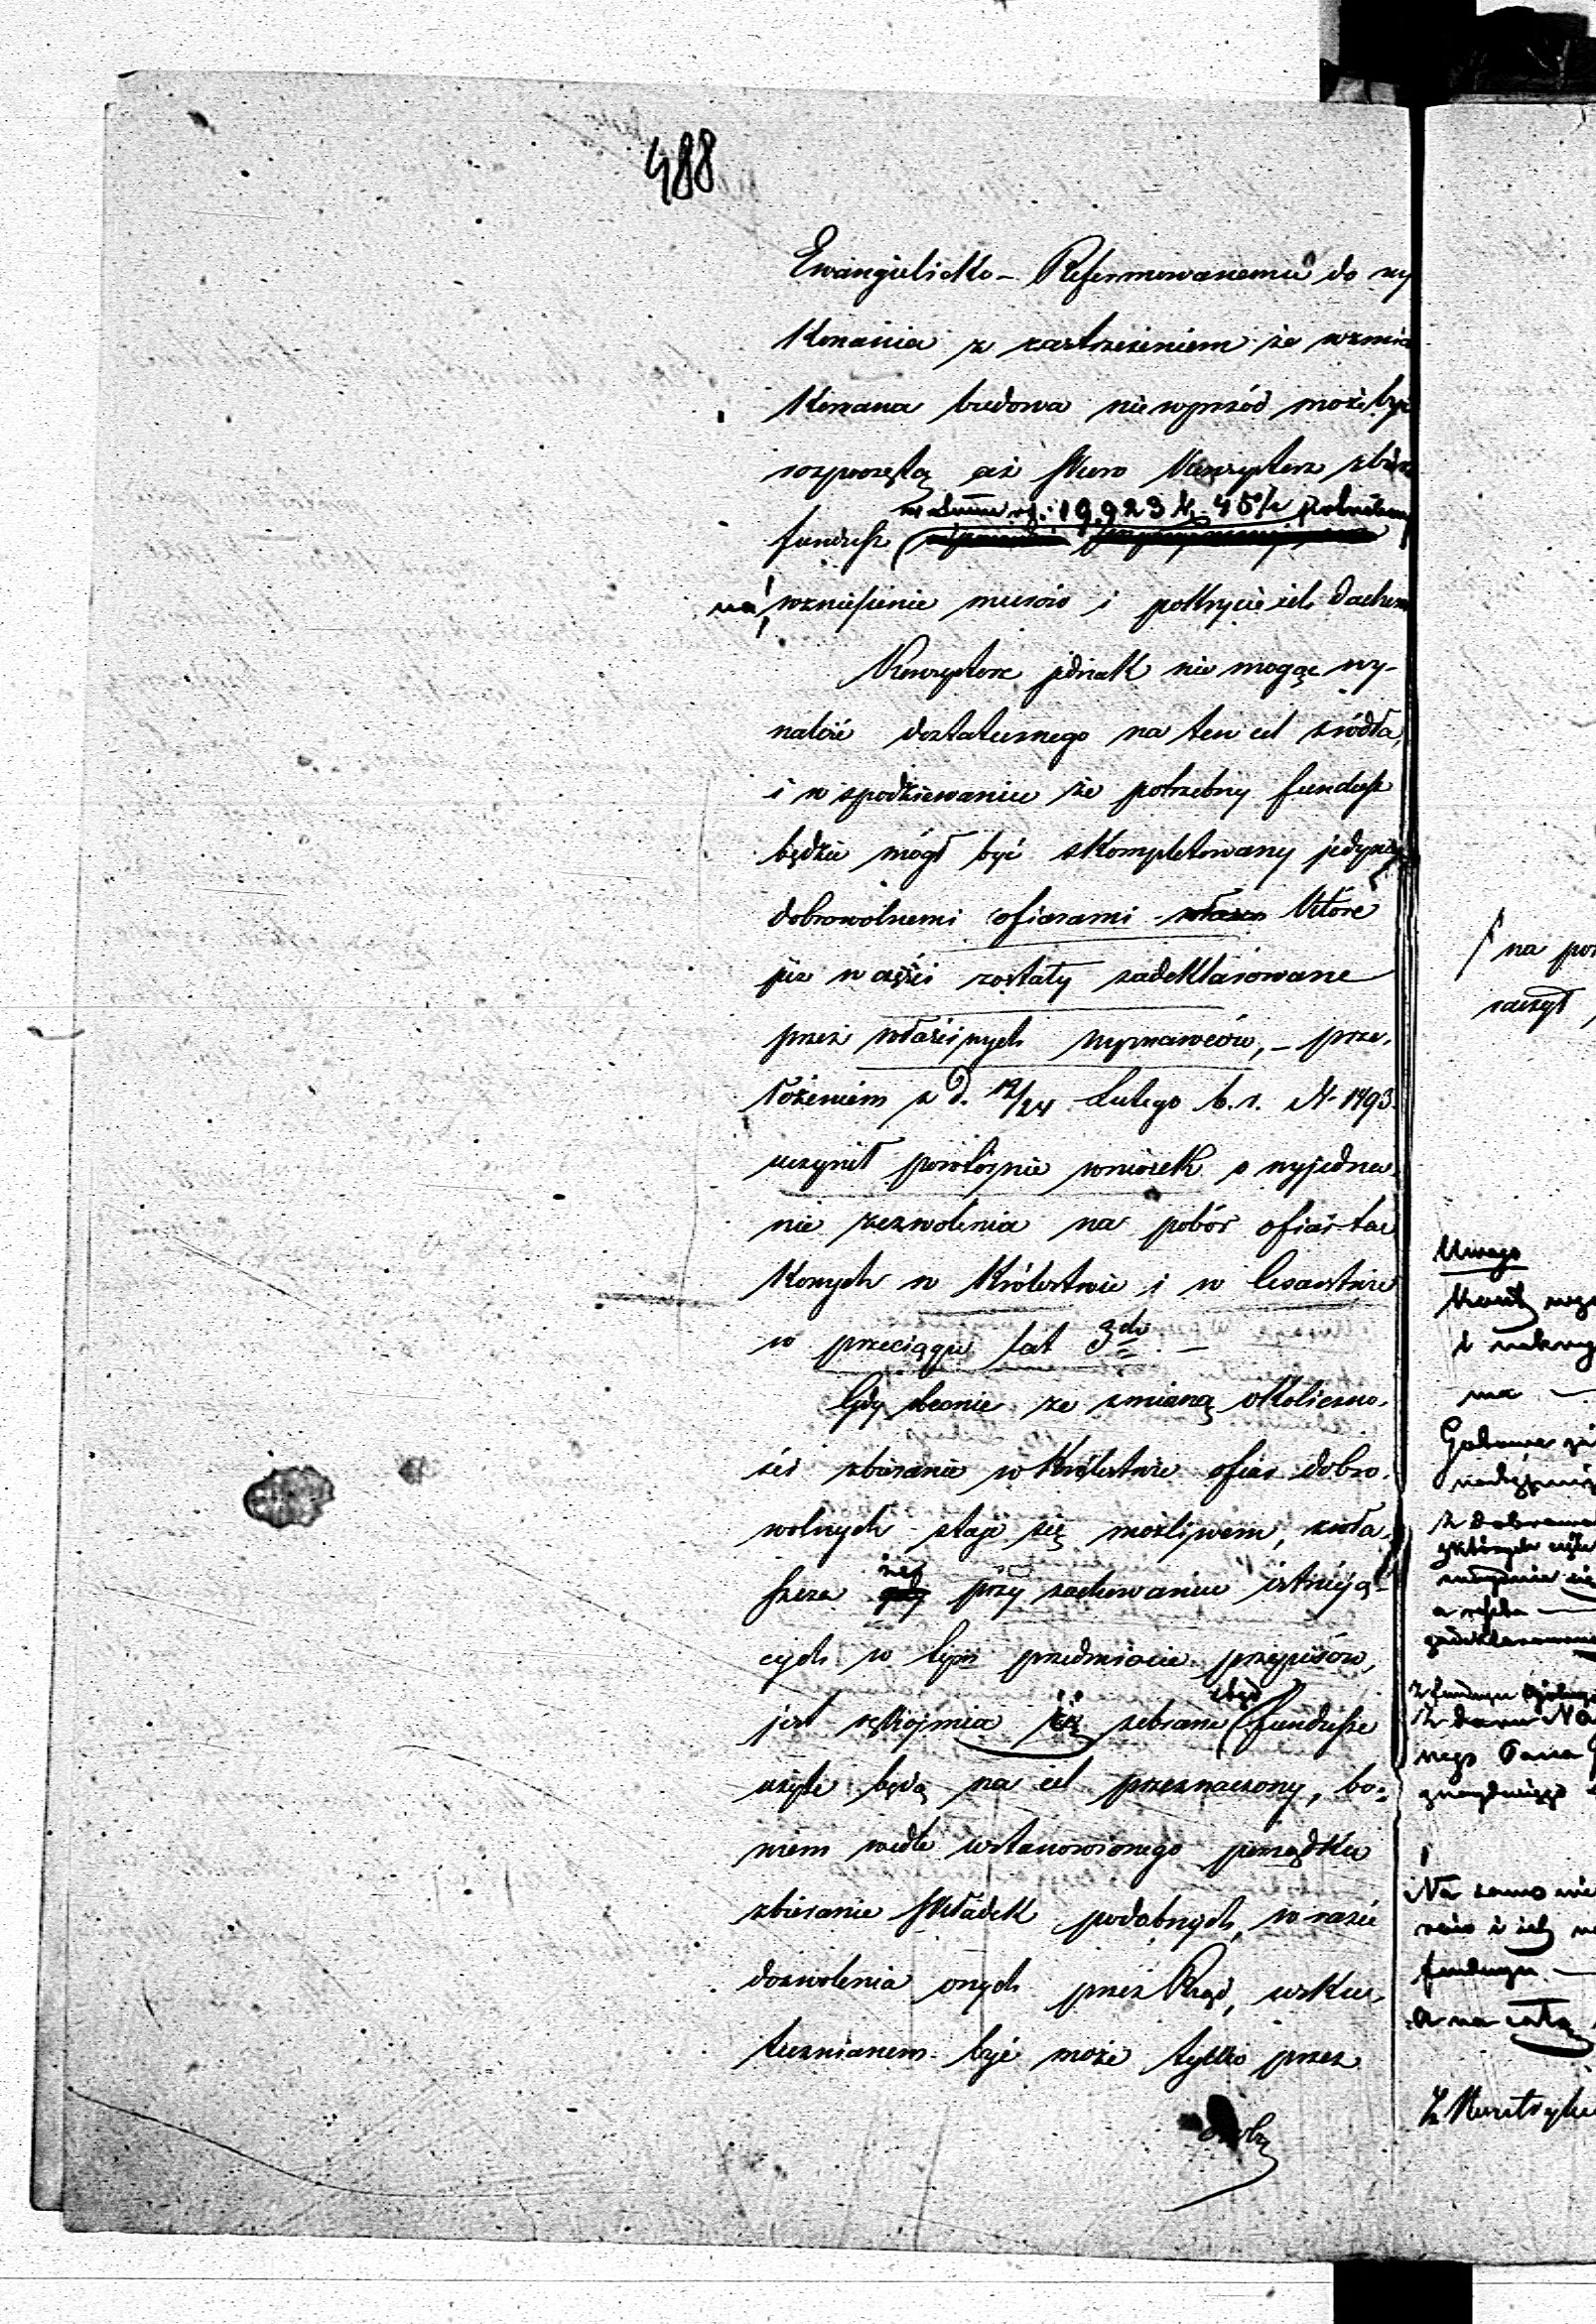 488
Ewangielicko-Reformowanemu do wy
konania z zastrzeżeniem że wzmian
kowana budowa nie wprzód może być
rozpoczętą aż skoro Konsystorz zbierze
w sumie rs. 19,923 k. 45½ potrzebny
fundusz
na wzniesienie murów i pokrycie ich dachem
Konsystorz jednak nie mogąc wy-
naleść dostatecznego na ten cel źródła,
i w spodziewaniu że potrzebny fundusz
będzie mógł być skompletowany jedynie
dobrowolnemi ofiarami które
już w części zostały zadeklarowane
przez właściwych wyznawców, – prze-
łożeniem z d. 12/24 Lutego b. r. N. 1493
uczynił powtórnie wniosek o wyjedna-
nie zezwolenia na pobór ofiar ta-
kowych w Królestwie i w Cesarstwie
w przeciągu lat 3ch. –
Gdy obecnie ze zmianą okoliczno-
ści zbieranie w Królestwie ofiar dobro-
wolnych staje się możliwem, zwła-
szcza że przy zachowaniu istnieją-
cych w tym przedmiocie przepisów,
jest rękojmia iż zebrane ztąd fundusze
użyte będą na cel przeznaczony, bo-
wiem wedle ustanowionego porządku
zbieranie składek podobnych, w razie
dozwolenia onych przez Rząd, usku-
tecznianem być może tylko przez
osoby
na po
raczył
Uwaga
Koszt wy
i
ma —
Gotowe
z
z
a reszta —
zadeklarowane
z funduszu
z daru Na
nego Pana
Na samo wznie
rów i ich
funduszu —
a na całą